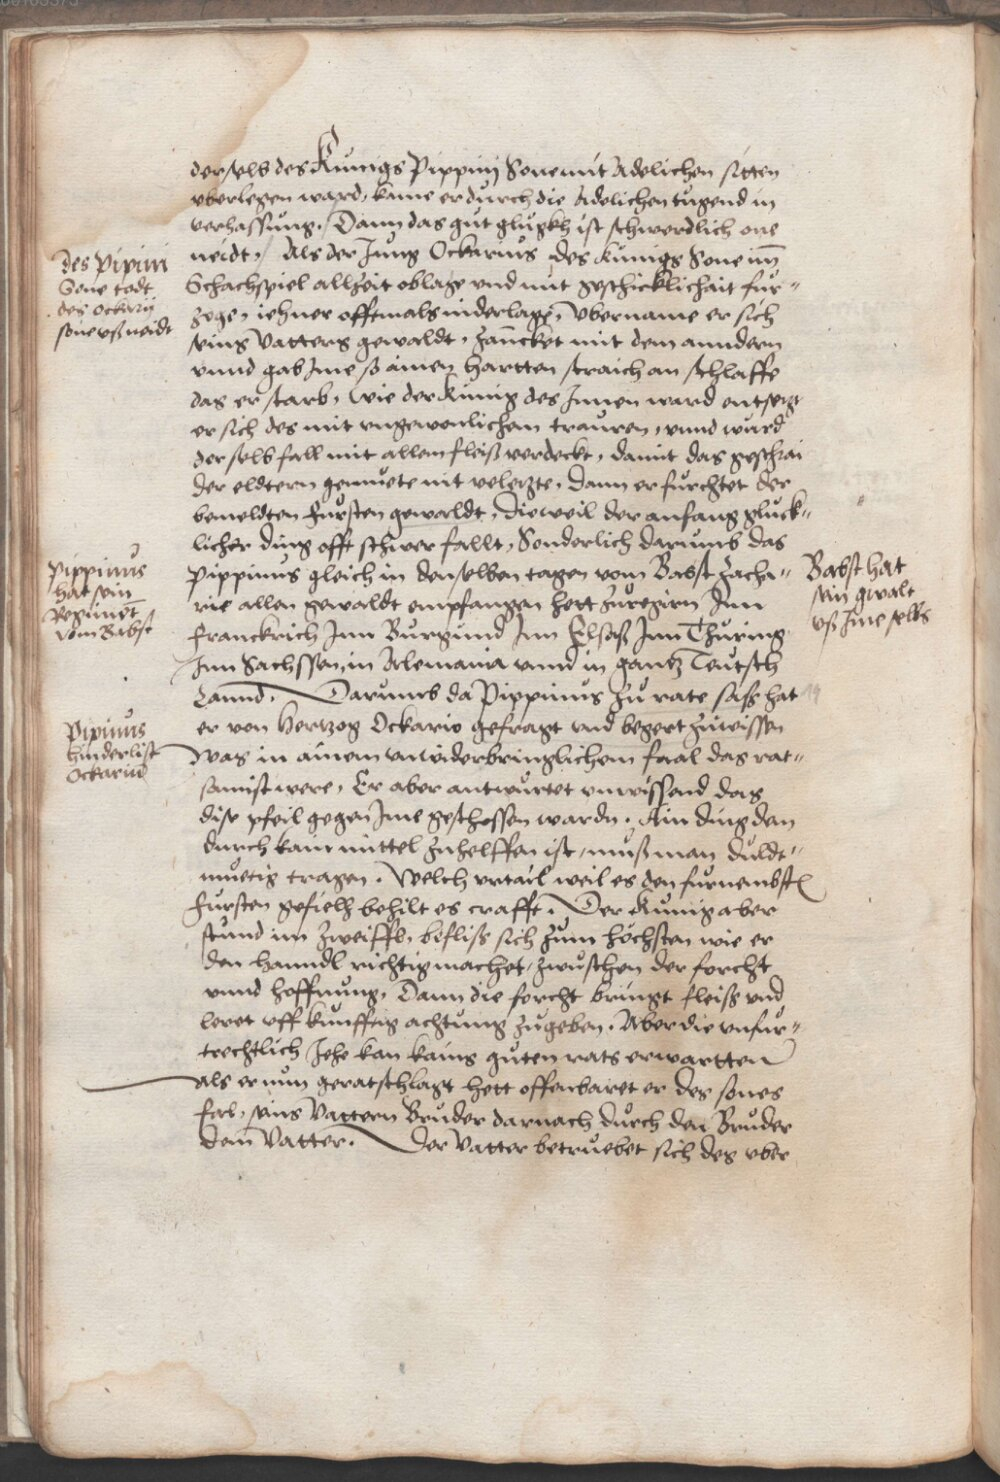 derselb des Kunigs Pippinj Sone mit Adelichen sitten
vberlegen ward, kame er durch die Adelichen tugend in
verhassung. Dann das gut glugkh ist schwerdlich one
neidt, Als der Jung Ockarius des Kunigs Sone im
Schachspiel allzeit oblage vnd mit geschicklichait fur-
zoge, iehner offtmals niderlage, Vbername er sich
seins Vatters gewaldt, zancket mit dem anndern
vnnd gab Ime so ainen hartten straich an schlaffe
das er starb, Wie der Kunig des Innen ward entsetzt
er sich des mit vngewonlichen trauren, vnnd ward
derselb fall mit allem fleiß verdeckt, damit das geschrai
der eldtern gemuete nit veletzte, dann er furchtet der
bemeldten fursten gewaldt, dieweil der anfang gluck-
licher ding offt schwer fallt, Sonderlich darumb das
Pippinus gleich in denselben tagen vom Babst Zacha-
rie allen gewaldt empfangen hett zuregirn Inn
Franckrich Inn Burgund Inn Elsaß Inn Thuring
Inn Sachssen, in Alemania vnnd in gantz Teutsch
Lannd. Darumb da Pippinus zu rate saß hat
er von Hertzog Ockario gefragt vnd begert zuwissen
Was in ainem vnwiderbringlichem faal das rat-
samist were, Er aber antwurtet vnwissend das
dise pfeil gegen Ime geschossen wardn. Ain ding dem
durch kain mittel zuhelffen ist, muß man duldt-
muetig tragen. Welch vrtail weil es den furnembsten
fursten gefielh behilt es crafft. Der Kunig aber
stund im zweiffl, befliss sich zum hochsten wie er
den hanndl richtig machet, zwuschen der forcht
vnnd hoffnung, Dann die forcht bringt fleiss vnd
leret vff kunfftig achtung zugeben. Aber die vnfur-
trechtlich Iehe kan kains guten rats erwartten
als er nun geratschlagt hett offenbaret er des sones
fal, seins Vattern Bruder darnach durch den Bruder
dem Vatter. Der Vatter betruebet sich des vber
des Pipini
Sone tedt
des Ockarij
sone vß neidt
Pippinus
hat sein
Regiment
vom Babst
Babst hat
sein gwalt
vß Ime selbs
Pipinus
hinderlist
Ockarium